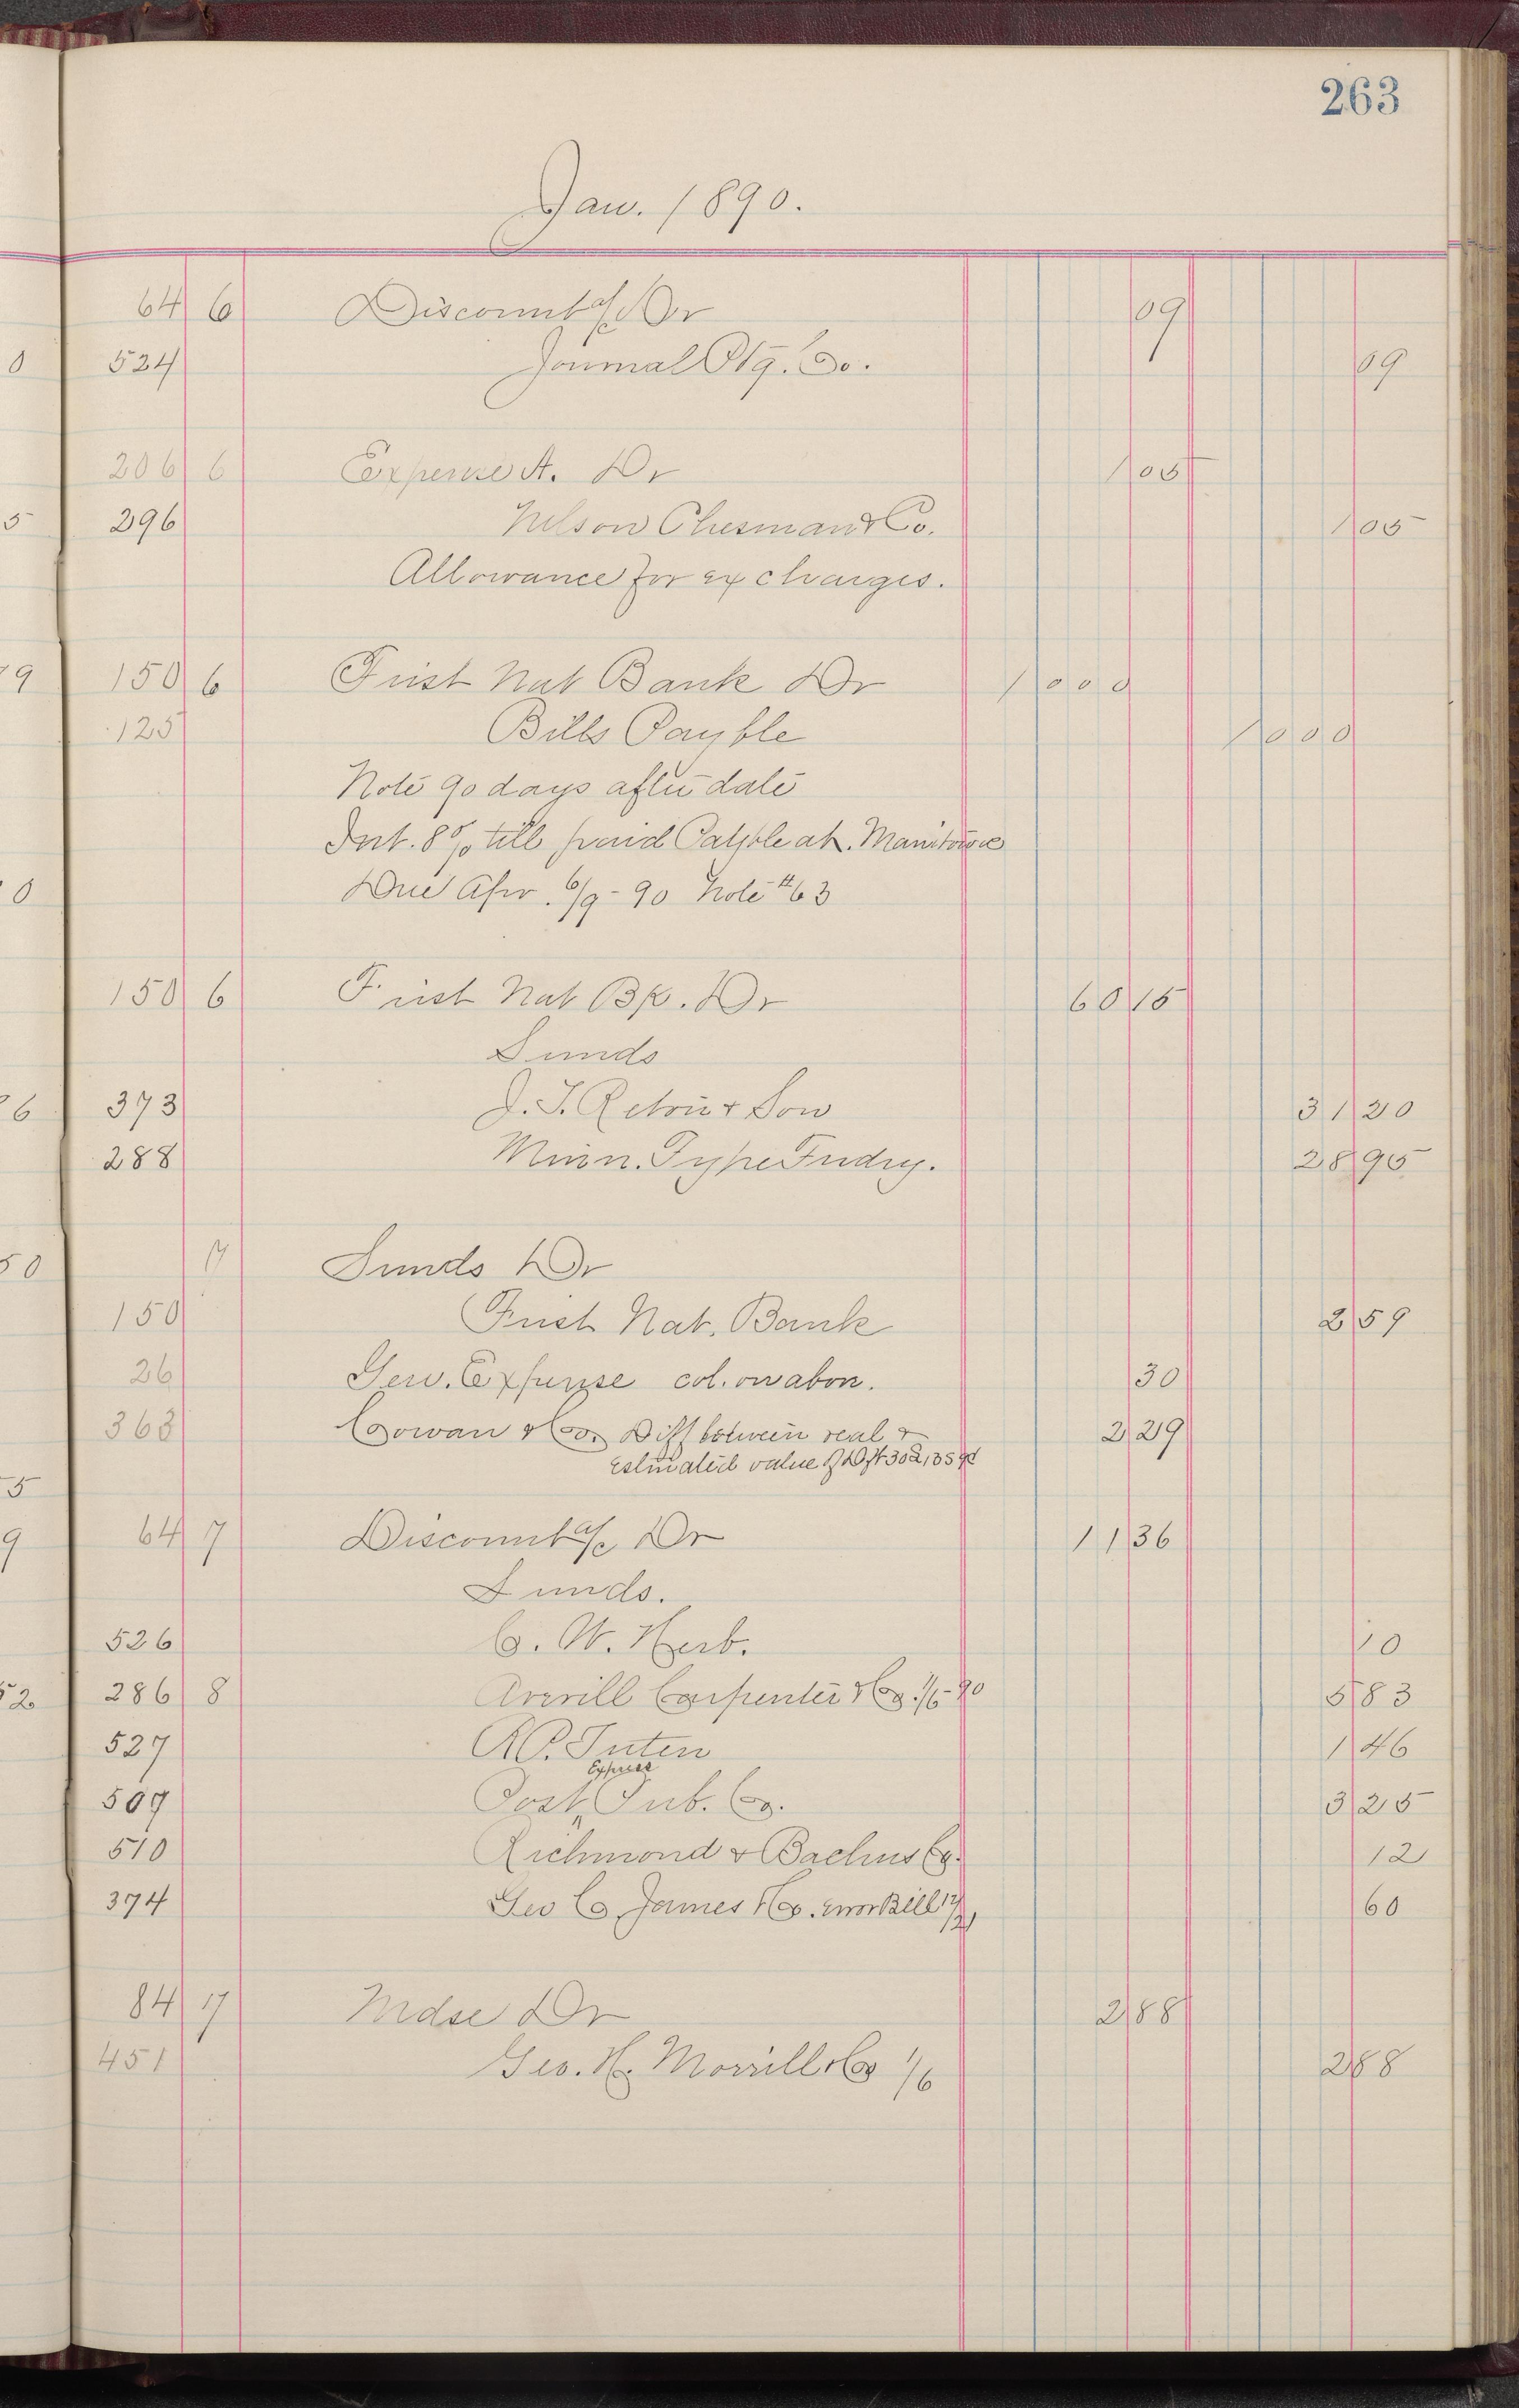 263
Jan. 1890.
64 6 Discount a/c Dr 09
524 Journal Ptg. Co. 09
206 6 Expense A. Dr 1 05
296 Nelson Chesman & Co. 1 05
Allowance for ex charges.
150 6 First Nat Bank Dr 1000
125 Bills Payble
1000
Note 90 days after date
Int. 8% till paid Payble at. Manitowoc
Due Apr. 6/9-90 Note #63
150 6 First Nat Bk. Dr 60 15
Sunds
373 J. S. & Son 31 20
288 Minn. Type Fndry. 28 95
7 Sunds Dr
150 First Nat. Bank 2 59
26 Gen. Expense col. on abov. 30
363 Cowan & Co. Diff between real & 2 29
Estimated value of Dft
64 7 Discount a/c Dr 11 36
Sunds.
526 C. W. Herb. 10
286 8 Averill Carpenter & Co. 1/6-90 5 83
527 R.P. Tuten 1 46
Express
509 Post Pub. Co. 3 25
510 Richmond & Bachus Co. 12
374 Geo C. James & Co. error Bill 12/21 60
84 7 Mdse Dr 2 88
451 Geo. H. Morrill & Co 1/6 2 88